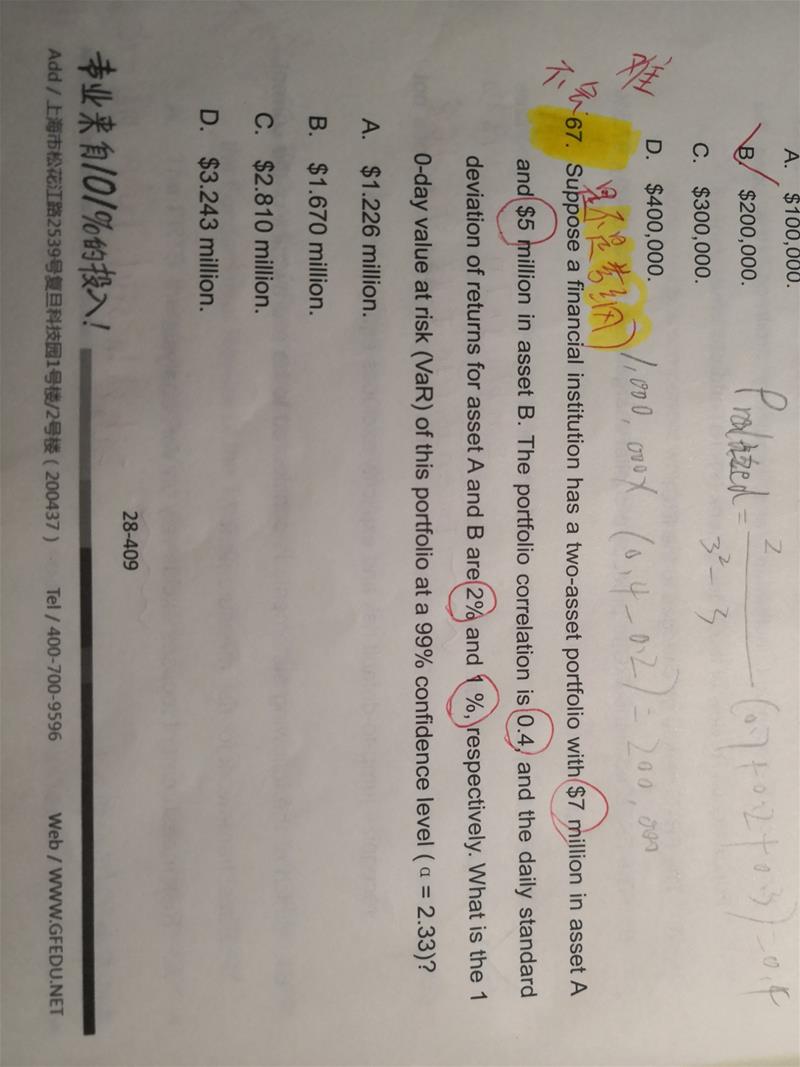 A. $100,000.
B. $200,000.
C. $300,000.
D. $400,000.
= 2 / 3² - 3 (0.7+0.2+0.3) = 0.4
1,000,000× (0.4-0.2) = 200,000
难
不会
是不是考纲
67. Suppose a financial institution has a two-asset portfolio with $7 million in asset A
and $5 million in asset B. The portfolio correlation is 0.4, and the daily standard
deviation of returns for asset A and B are 2% and 1 %, respectively. What is the 1
0-day value at risk (VaR) of this portfolio at a 99% confidence level ( α = 2.33)?
A. $1.226 million.
B. $1.670 million.
C. $2.810 million.
D. $3.243 million.
28-409
专业来自101%的投入!
Add / 上海市松花江路2539号复旦科技园1号楼/2号楼 ( 200437 ) Tel / 400-700-9596 Web / WWW.GFEDU.NET